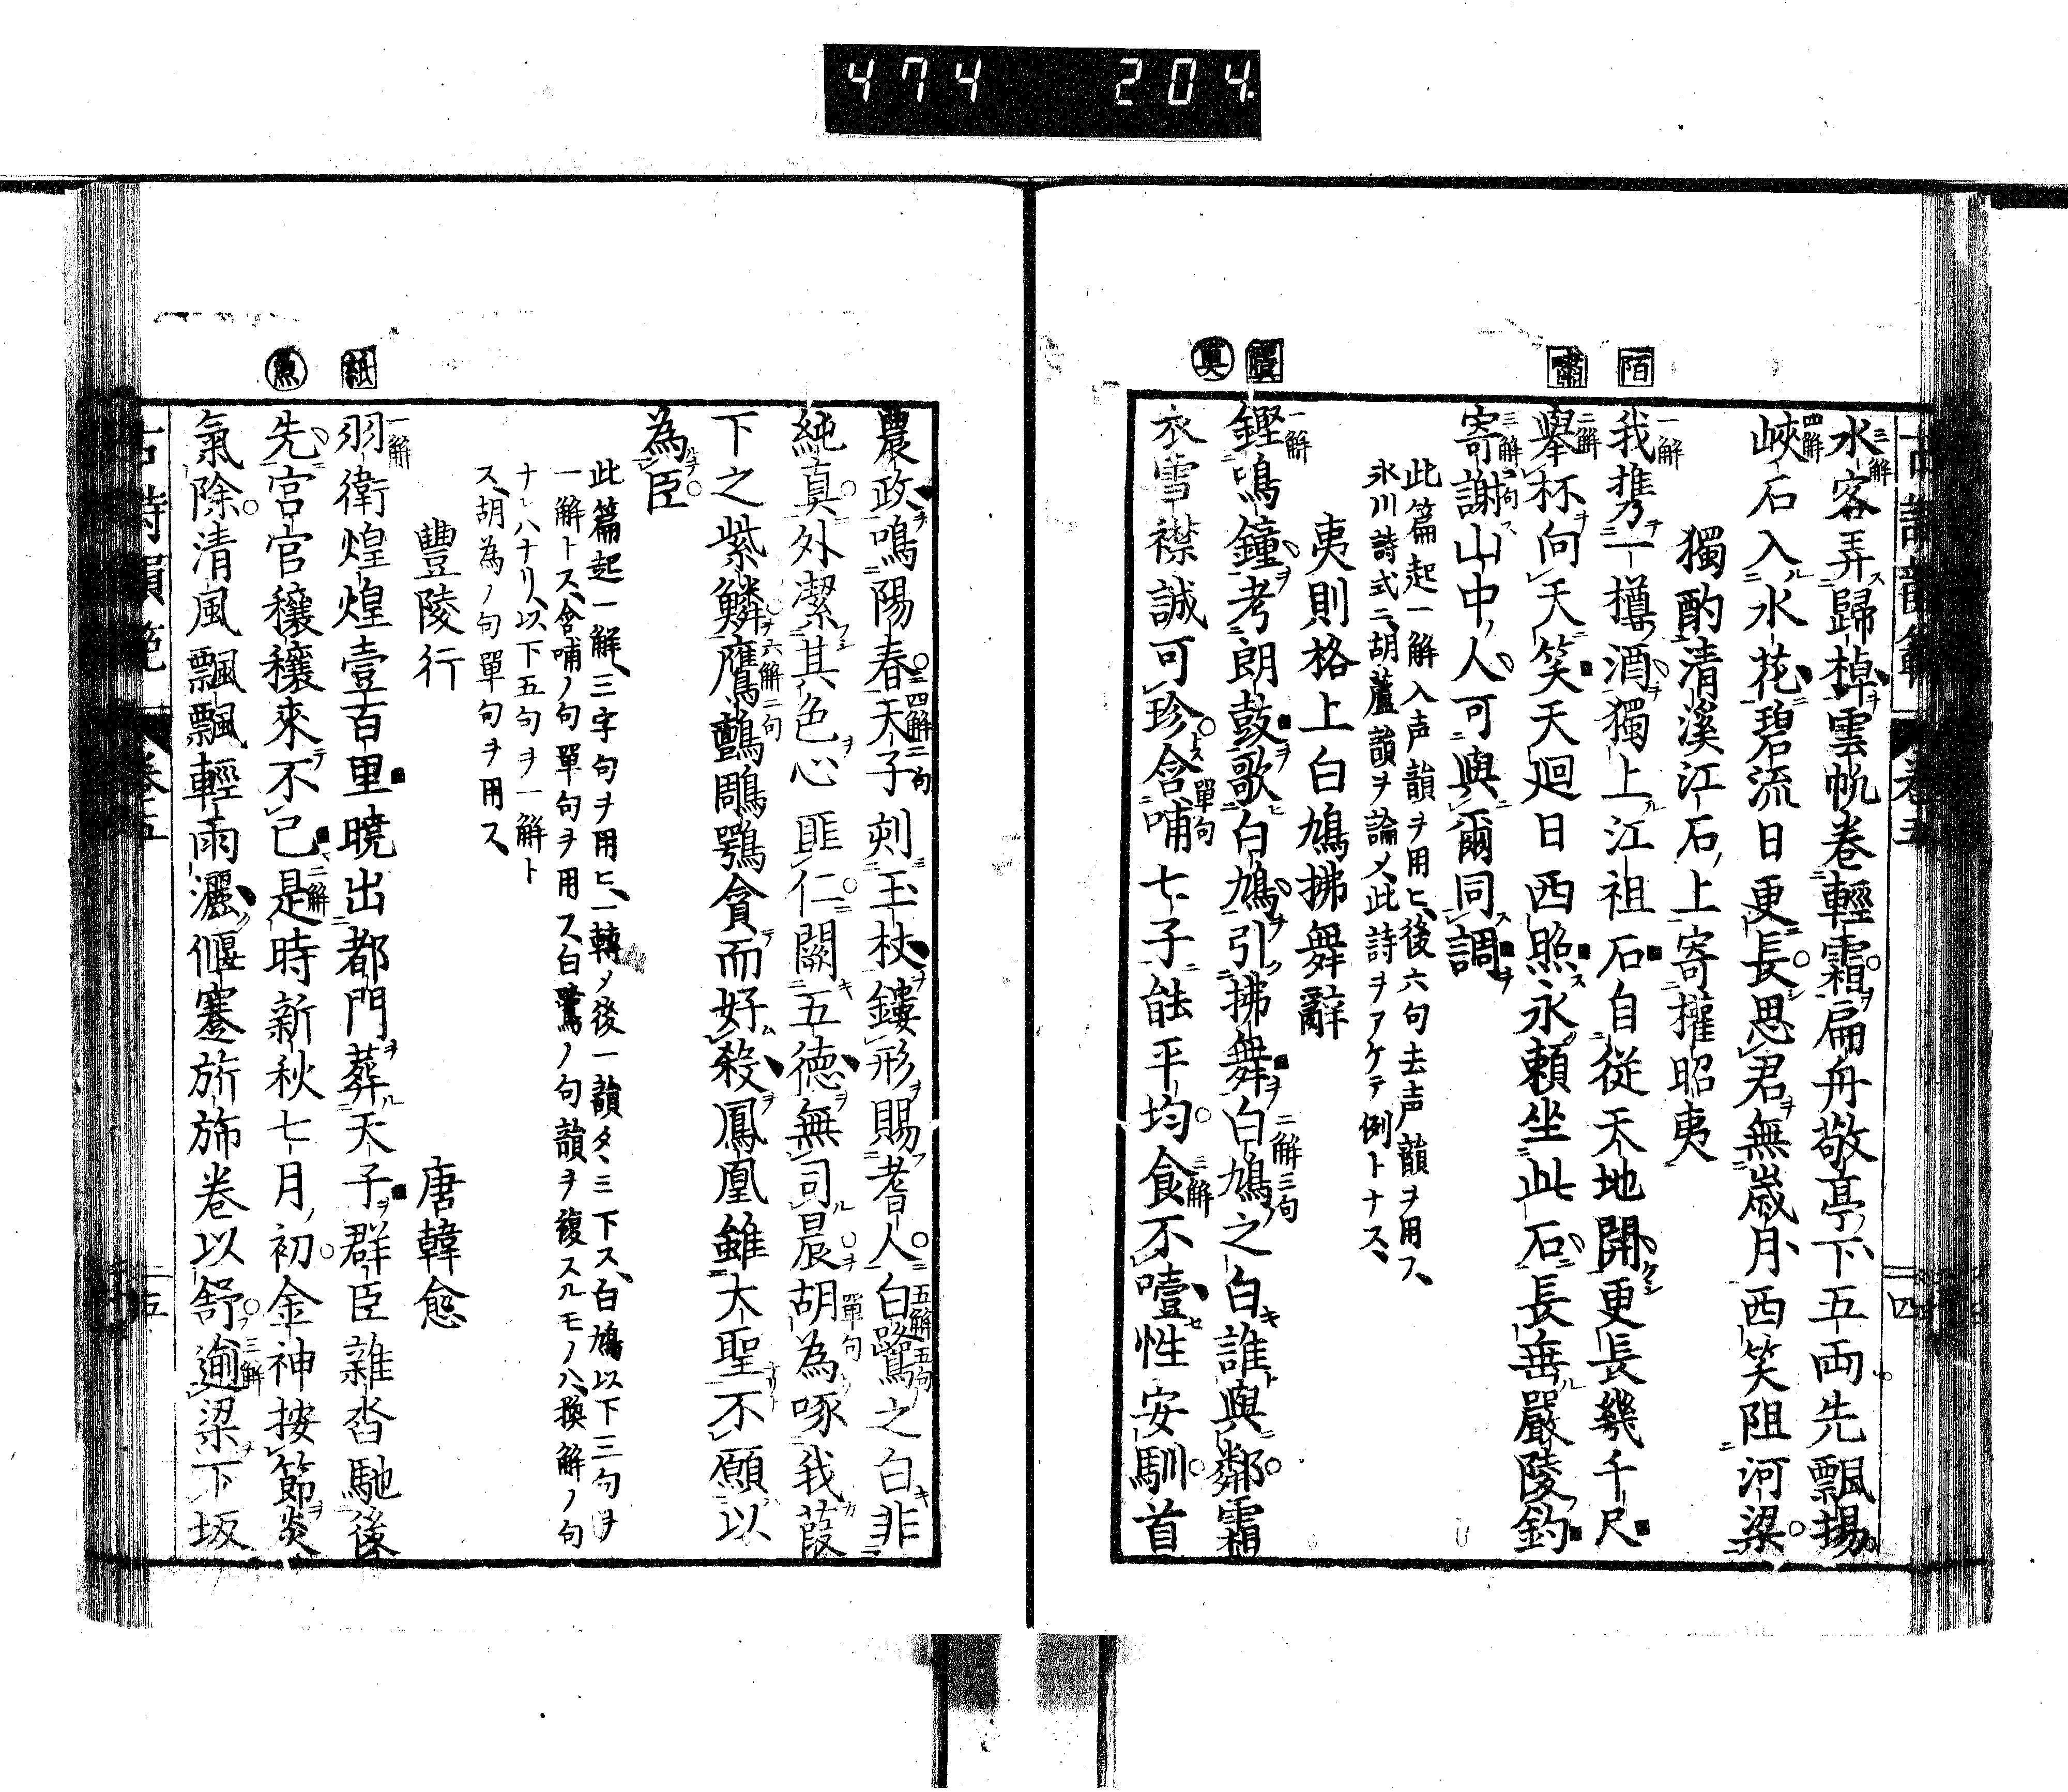 474 204
水客弄歸棹雲帆卷輕霜扁舟敬亭下五両先飄揚
峽石入水花碧流日更長思君無歲月西笑阻河梁
獨酌清溪江石上寄權昭夷
陌
我携一樽酒獨上江祖石自従天地開更長幾千尺
嘯
舉杯向天笑天廻日西照永頼坐此石長垂嚴陵釣
寄謝山中人可與爾同調
此篇起一解入声韻ヲ用ヒ、後六句去声韻ヲ用フ、
永川詩式ニ、胡蘆韻ヲ論メ、此詩ヲアケテ例トナス、
夷則格上白鳩拂舞辭
鏗鳴鐘考朗鼓歌白鳩引拂舞白鳩之白誰與鄰霜
真
衣雪襟誠可珍含哺七子能平均食不噎性安馴首
農政鳴陽春天子刻玉杖鏤形賜耆人白鷺之白非
純真外潔其色心匪仁闕五德無司晨胡為啄我葭
下之紫鱗鷹鸇鵰鶚貪而好殺鳳凰雖大聖不願以
為臣
此篇起一解、三字句ヲ用ヒ、一轉メ後一韻タヽ三下ス、白鳩以下三句ヲ
一解トス、含哺ノ句單句ヲ用ス、白鷺ノ句韻ヲ複スルモノハ、換解ノ句
ナレハナリ、以下五句ヲ一解ト
ス、胡為ノ句單句ヲ用ス、
豐陵行 唐韓愈
紙
羽衛煌煌壹百里曉出都門葬天子群臣雜沓馳後
魚
先宮官穰穰來不已是時新秋七月初金神按節炎
氣除清風飄飄輕雨灑偃蹇旂旆卷以舒逾梁下坂